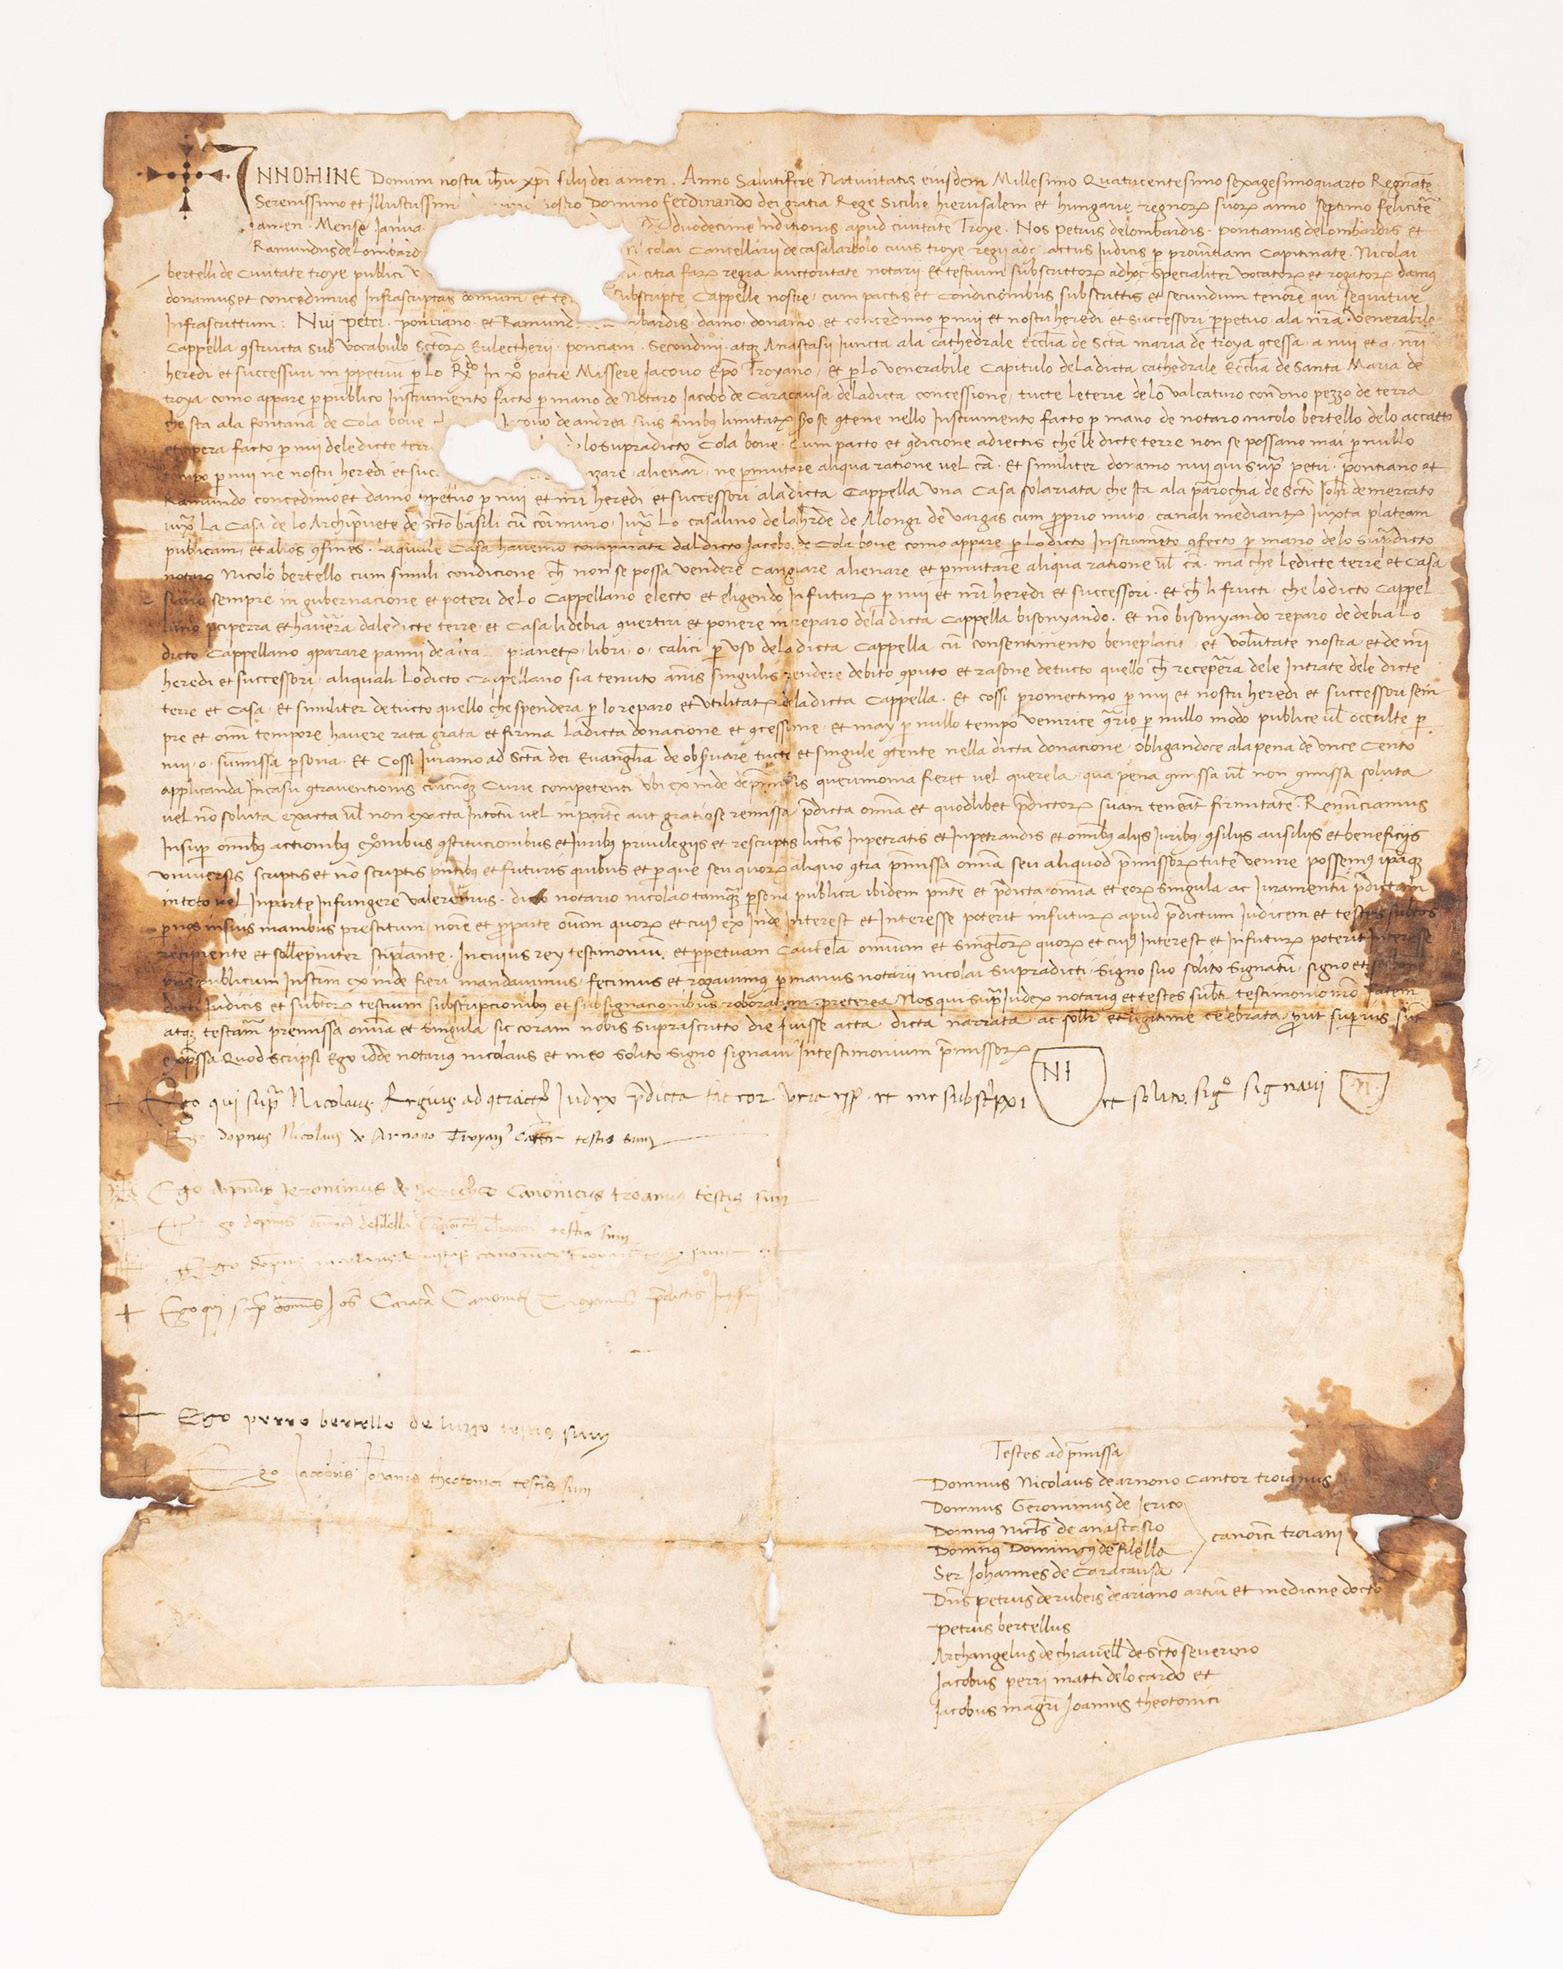 INNOMINE Domini nostri ihū xpi filii dei amen. Anno Salutifere Natiuitatis eiusdem Millesimo Quatricentesimo sexagesimoquarto Regnāte
Serenissimo et Illustrissim nostro Domino Ferdinando dei gratia Rege Sicilie hierusalem et hungarie, regnorꝝ suorꝝ anno septimo felicit̄
amen. Mense Janua duodecime Inditionis apud ciuitatē Troye. Nos petrus delombardis. pontianus delombardis et
Ramundus de Lombard colai Cancellarii de casalarbolo ciuis troye regii actus Iudicis ꝑ prouītiam Capitinate. Nicolai
bertelli de Ciuitate troye publici citra farꝝ regia auctoritate notarii. Et testium subscrittorꝝ adhoc specialiter vocatorꝝ et rogatorꝝ damus
donamus et concedimus Infrascriptas domum et te subscripte Cappelle nostre, cum pactis et Condicionibus subscrittis et secundum tenorē qui sequitur
Infrascrittum: Nui petri. pontiano. et Ramund bardis. damo. donamo. et concedimo ꝑ nui et nostri heredi et successori ꝑpetuo. ala nr̄a. Venerabile
Cappella ꝯstructa sub vocabulo Sctorꝝ Eulectherii. ponciani. Secondini. atqꝫ Anastasii Iuncta ala cathedrale Ecclīa de Sctā maria de troya ꝯcessa. a nui et a. nr̄i
heredi et successuri in ꝑpetuū ꝑ lo Rđo In xo patre Missere Iacouo Epō Troyano, et ꝑ lo venerabile Capitulo dela dicta cathedrale Ecclīa de Santa Maria de
troya como appare ꝑ publico Instrumento facto ꝑ mano de Notaro Iacobo de Caracausa dela dicta concessione, tucte le terre de lo Valcaturo con vno pezzo de terra
che sta ala fontana de Cola boue Iacouo de andrea suis finibus limitatꝝ se ꝯtene nello Instrumento facto ꝑ mano de notaro nicolo bertello de lo accatto
et opera facto ꝑ nui dele dicte terr lo supradicto Cola boue. Cum pacto et ꝯdicione adiectis che le dicte terre non se possano mai ꝑ nullo
tempo ꝑ nui ne nostri heredi et suc zare, alienar̄, ne ꝑmutare aliqua ratione vel cā. Et similiter donamo nui qui supͣ petri. pontiano et
Ramundo concedimo et damo ꝑpetuo ꝑ nui et nr̄i heredi et successori ala dicta Cappella Vna Casa solariata che sta ala parochia de Scto Iohī de mercato
iuxͣ La Casa de lo Archipuete de Scto basili cū cōi muro, Iuxͣ Lo casalino de la hrde de Alongi de Vargas cum ꝓprio muro, canali mediantꝝ Iuxta plateam
publicam, et alios ꝯfines. la quale Casa hauemo comparata dal dicto Iacobo de Cola boue como appare ꝑ lo dicto Instrumēto ꝯfecto ꝑ mano de lo supͣdicto
notaro Nicolo bertello cum simili condicione ch̄ non se possa vendere Cangiare alienare et ꝑmutare aliqua ratione ul̄ cā. ma che le dicte terre et Casa
siano sempre in gubernacione et poteri de Lo Cappellano electo et eligendo In futurꝝ ꝑ nui et nr̄i heredi et successori. et ch̄ li fructi, che lo dicto Cappel
lano ꝑciperra et hauera dale dicte terre, et Casa li debia ꝯuertiri et ponere in reparo dela dicta Cappella bisonyando. Et nō bisonyando reparo de debia Lo
dicto Cappellano ꝯparare panni de pianetꝝ. libri. o. calici ꝑ vso dela dicta Cappella cū consentimento beneplacit et voluntate nostra, et de nr̄i
heredi et successori, ali quali Lo dicto Cappellano sia tenuto annis singulis rendere debito ꝯputo et rasone de tucto quello ch̄ recepera dele Intrate dele dicte
terre et Casa, et similiter de tucto quello che spendera ꝑ lo reparo et Vtilitatꝝ dela dicta Cappella. Et cossi promectimo ꝑ nui et nostri heredi et successori sem
pre et omī tempore hauere rata grata et firma La dicta donacione et ꝯcessione, et may ꝑ nullo tempo venirce ꝯtrario ꝑ nullo modo publice ul̄ occulte ꝑ
nui. o. sumissa ꝑsona. Et Cossi Iuramo ad Sctā dei Euangelia de obseruare tucte et singule ꝯtente nella dicta donacione, obligandoce ala pena de vnce Cento
applicanda In casu ꝯtrauentionis cuicunqꝫ Curie competenti vbi ex inde de premissis querimonia fieret vel querela, qua pena ꝯmissa ul̄ non ꝯmissa soluta
vel nō soluta exacta ul̄ non exacta In totū vel in parte aut gratiose remissa p̄dicta omīa et quodlibet p̄dictorꝝ suam teneāt firmitatē. Renunciamus
Insuper omībꝫ actionibus exonibus ꝯstitucionibus et Iuribꝫ priuilegiis et rescriptis lictr̄is Inpetratis et Inpetrandis et omībꝫ aliis Iuribꝫ, ꝯsiliis ausiliis et beneficiis
vniuersis scriptis et nō scriptis pn̄tibꝫ et futuris quibus et ꝑ que seu quorꝝ aliquo ꝯtra p̄missa omīa seu aliquod p̄missorꝝ tute venire possemus ipsaqꝫ
in toto vel Inparte Infringere valeremus. dicto notario nicolao tamquā ꝑsona publica ibidem pn̄te et p̄dicta omīa et eorꝝ singula ac Iuramentū p̄dictam
ꝑ nos in suis manibus prestitum, noīe et ꝓ parte omīm quorꝝ et cuiꝫ ex Inde Interest et Interesse poterit in futurꝝ apud p̄dictum Iudicem et testes subtos
recipiente et sollepniter stipulante. In cuius rey testimonium, et ꝑpetuam Cautela omium et singlorꝝ quorꝝ et cuiꝫ Interest et In futurꝝ poterit Interesse
publicum Instm̄ ex inde fieri mandauimus, fecimus et rogauimus ꝑ manus notarii nicolai supradicti, signo suo solito signatū, signo et
dicti Iudicis et subtorꝝ testium subscripcionibus et subsignacionibus roboratum. preterea Nos qui supͣ Iudex notarius et testes subtī testimonio nr̄o fatem
atqꝫ testam̄ premissa omīa et singula sic coram nobis suprascritto die fuisse acta dicta narrata ac sollr̄ et legitime celebrata, prout superius sūt
expressa Quod scripsi Ego idde notarius nicolaus et meo solito signo signaui In testimonium p̄missorꝝ
NI
Ego qui supͣ Nicolaus. Regius ad ꝯtractꝫ Iudex p̄dicta fateor vera esse et me subscripxi et solito. sigo signaui .N.
Ego dopnus Nicolaus de Arnono Troyanꝰ Cantor testis sum
Ego dopnus Ieronimus de Ierico Canonicus troanus testis sum
Ego dopnus de filella Canonicus testis sum
Ego dopnus nicolaus canonicus troianus testis sum
Ego qui supͣ Ios Caracā Canonicꝫ Troyanus p̄dictis
Ego perro bertello de testis sum
Ego Iacobus Iohanis theotonici testis sum
Testes ad p̄missa
Domnus Nicolaus de arnono Cantor troianus
Domnus Geronimus de Ierico
Domnꝫ Nicl̄s de anastasio
Domnꝫ Dominicꝫ de filella canonici troiani
Ser Iohannes de Caracausa
Dn̄s petrus de rubeis de ariano artiū et medicine doctor
petrus bertellus
Archangelus de chiauell̄ de Scto seuerino
Iacobus perri matti de lo cardo et
Iacobus magr̄i Ioannis theotonici